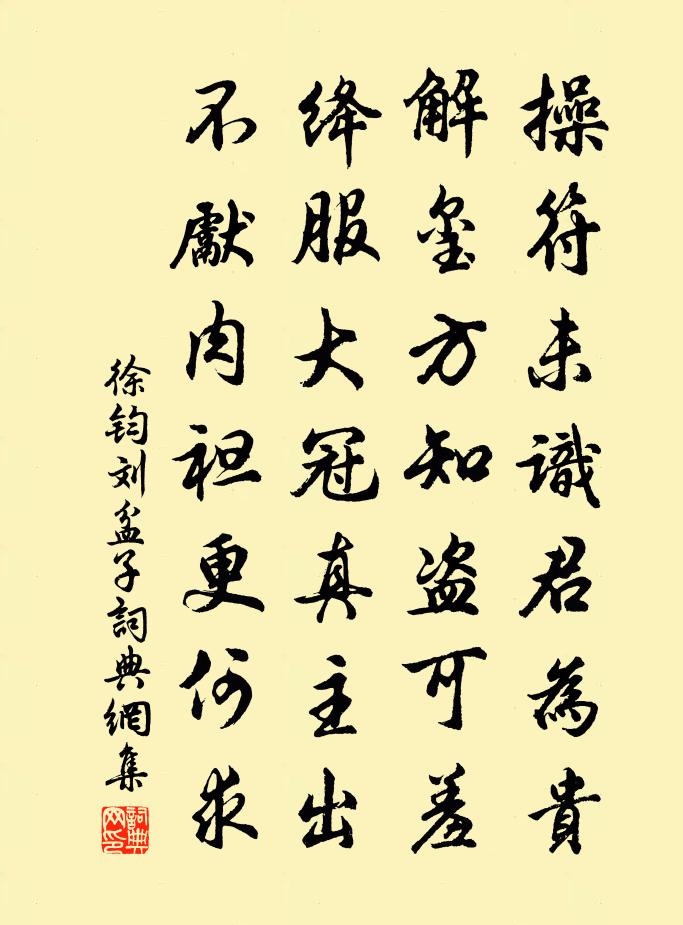 操符未識君為貴
解璽方知盗可羞
絳服大冠真主出
不獻肉袒更何求
徐鈞刘盆子詞典網集
詞典网印